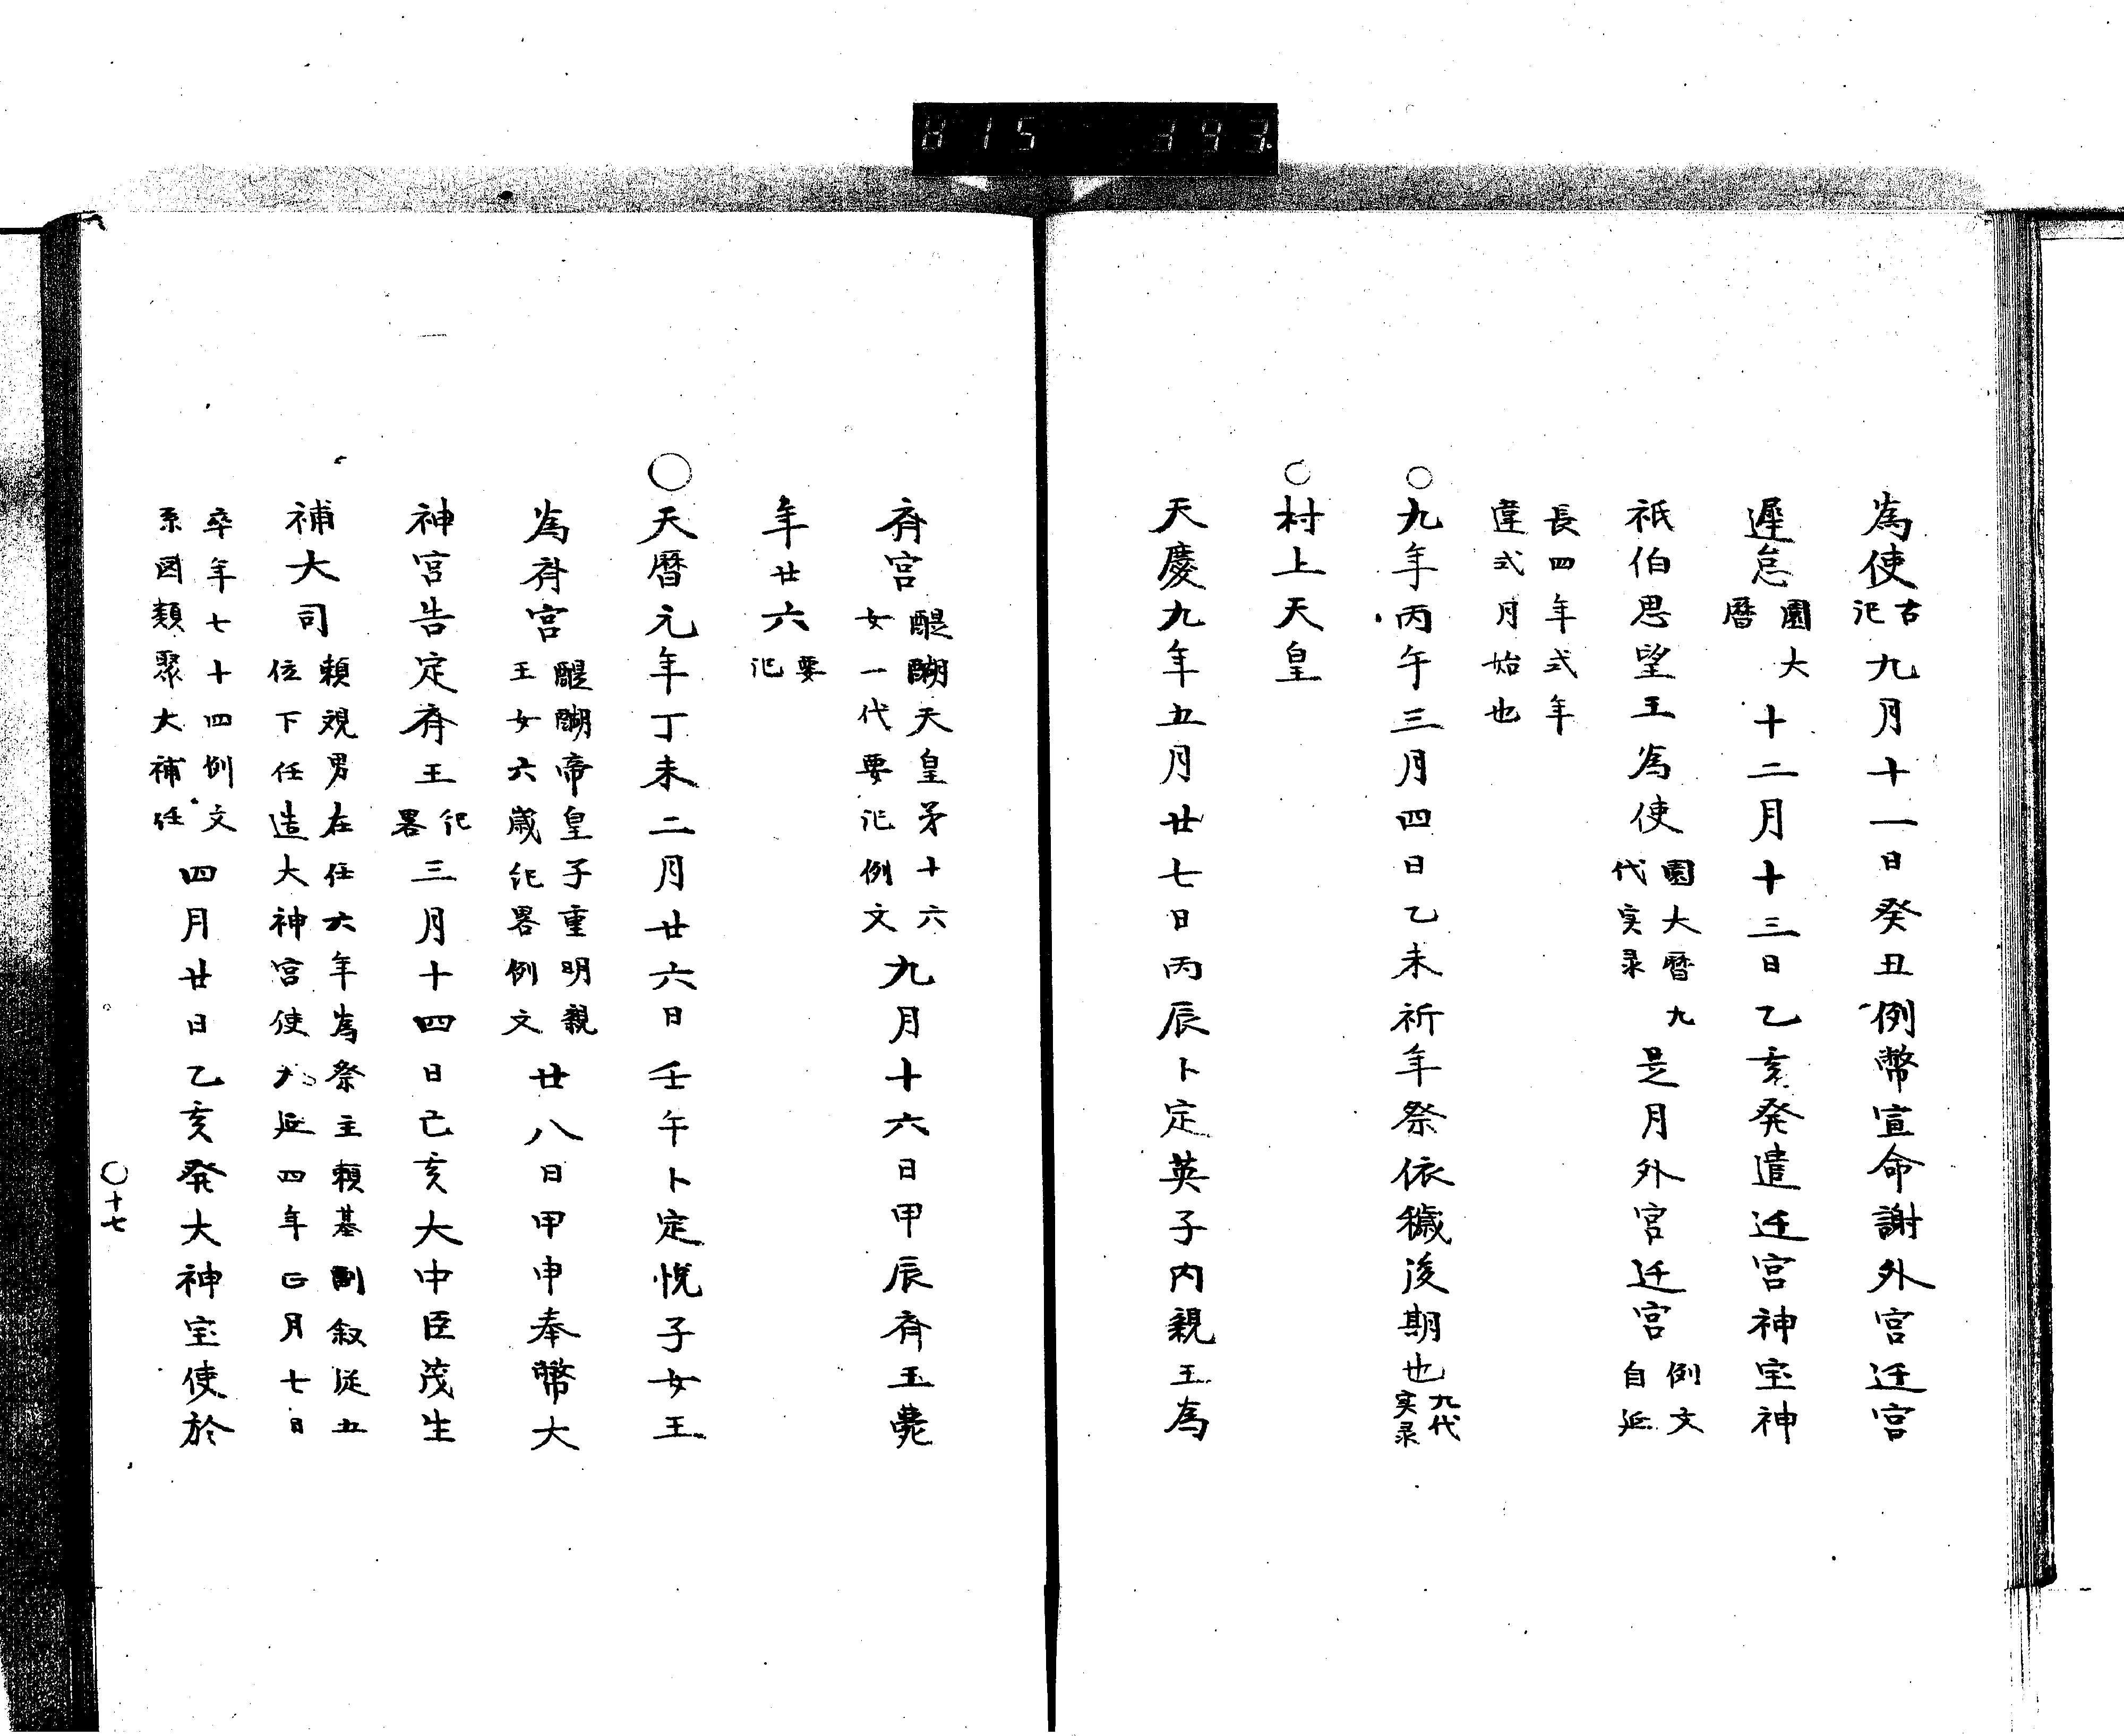 815 393
為使古記九月十一日癸丑例幣宣命謝外宮迁宮
遅怠園大曆十二月十三日乙亥発遣迁宮神宝神
祇伯思望王為使園大暦九代実录是月外宮迁宮例文自延
長四年式年違式月始也
○九年丙午三月四日乙未祈年祭依穢後期也九代実录
○村上天皇
天慶九年五月廿七日丙辰卜定英子内親王為
斎宮醍醐天皇第十六女一代要記例文九月十六日甲辰斎王薨
年廿六要記
○天暦元年丁未二月廿六日壬午卜定悦子女王
為斎宮醍醐帝皇子重明親王女六歳紀畧例文廿八日甲申奉幣大
神宮告定斎王紀畧三月十四日己亥大中臣茂生
補大司頼視男在任六年為祭主頼基副叙従五位下任造大神宮使延四年正月七日
卒年七十四例文系図類聚大補任四月廿日乙亥発大神宝使於
○十七